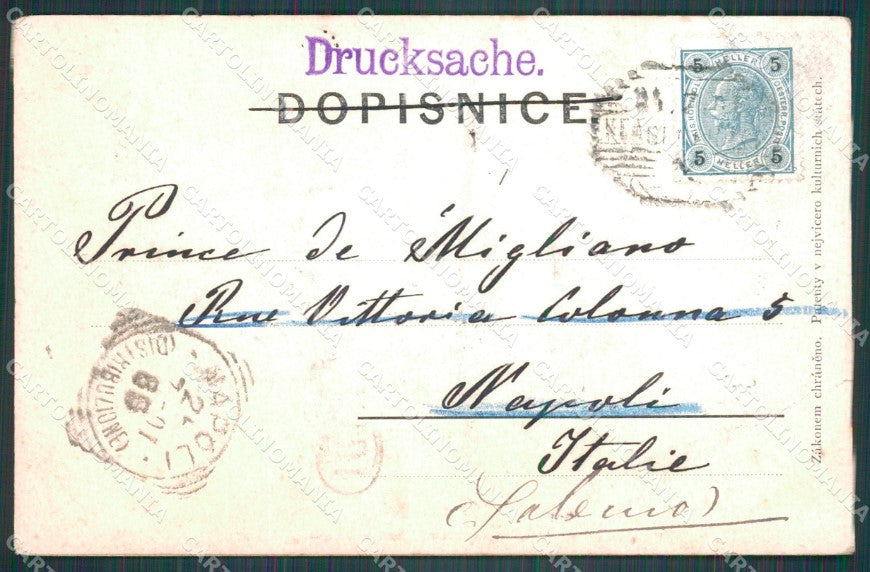 Drucksache.
DOPISNICE.
5 HELLER 5
5 HELLER 5
Prince de Migliano
Rue Vittoria Colonna 5
Napoli
Italie
(Salerno)
NAPOLI
(DISTRIBUZIONE)
Zákonem chráněno. Patenty v nejvícero kulturních státech.
CARTOLINOMANIA